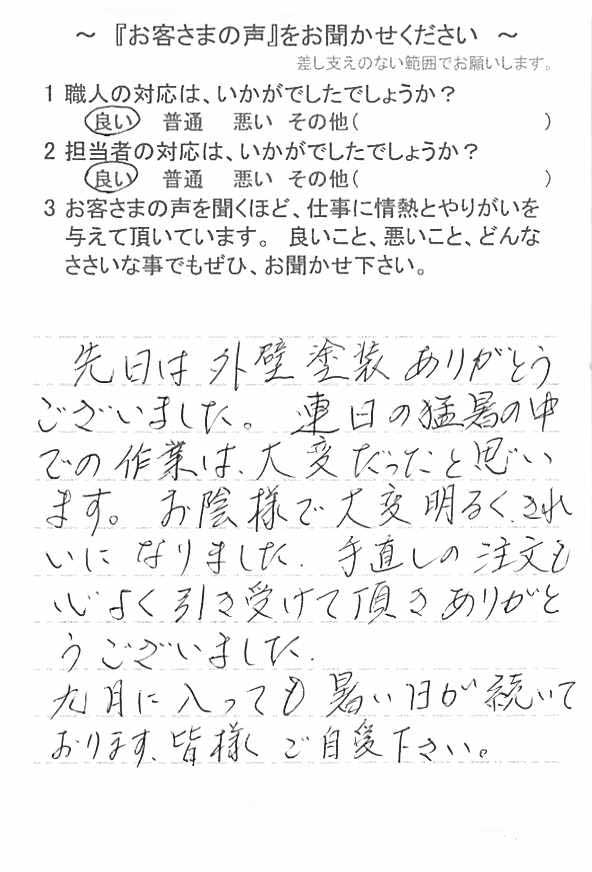 ～ 『お客さまの声』をお聞かせください ～
差し支えのない範囲でお願いします。
1 職人の対応は、いかがでしたでしょうか？
良い 普通 悪い その他( )
2 担当者の対応は、いかがでしたでしょうか？
良い 普通 悪い その他( )
3 お客さまの声を聞くほど、仕事に情熱とやりがいを
与えて頂いています。 良いこと、悪いこと、どんな
ささいな事でもぜひ、お聞かせ下さい。
先日は外壁塗装ありがとう
ございました。連日の猛暑の中
での作業は、大変だったと思い
ます。お陰様で大変明るく、きれ
いになりました。手直しの注文も
心よく引き受けて頂きありがと
うございました。
九月に入っても暑い日が続いて
おります、皆様くご自愛下さい。